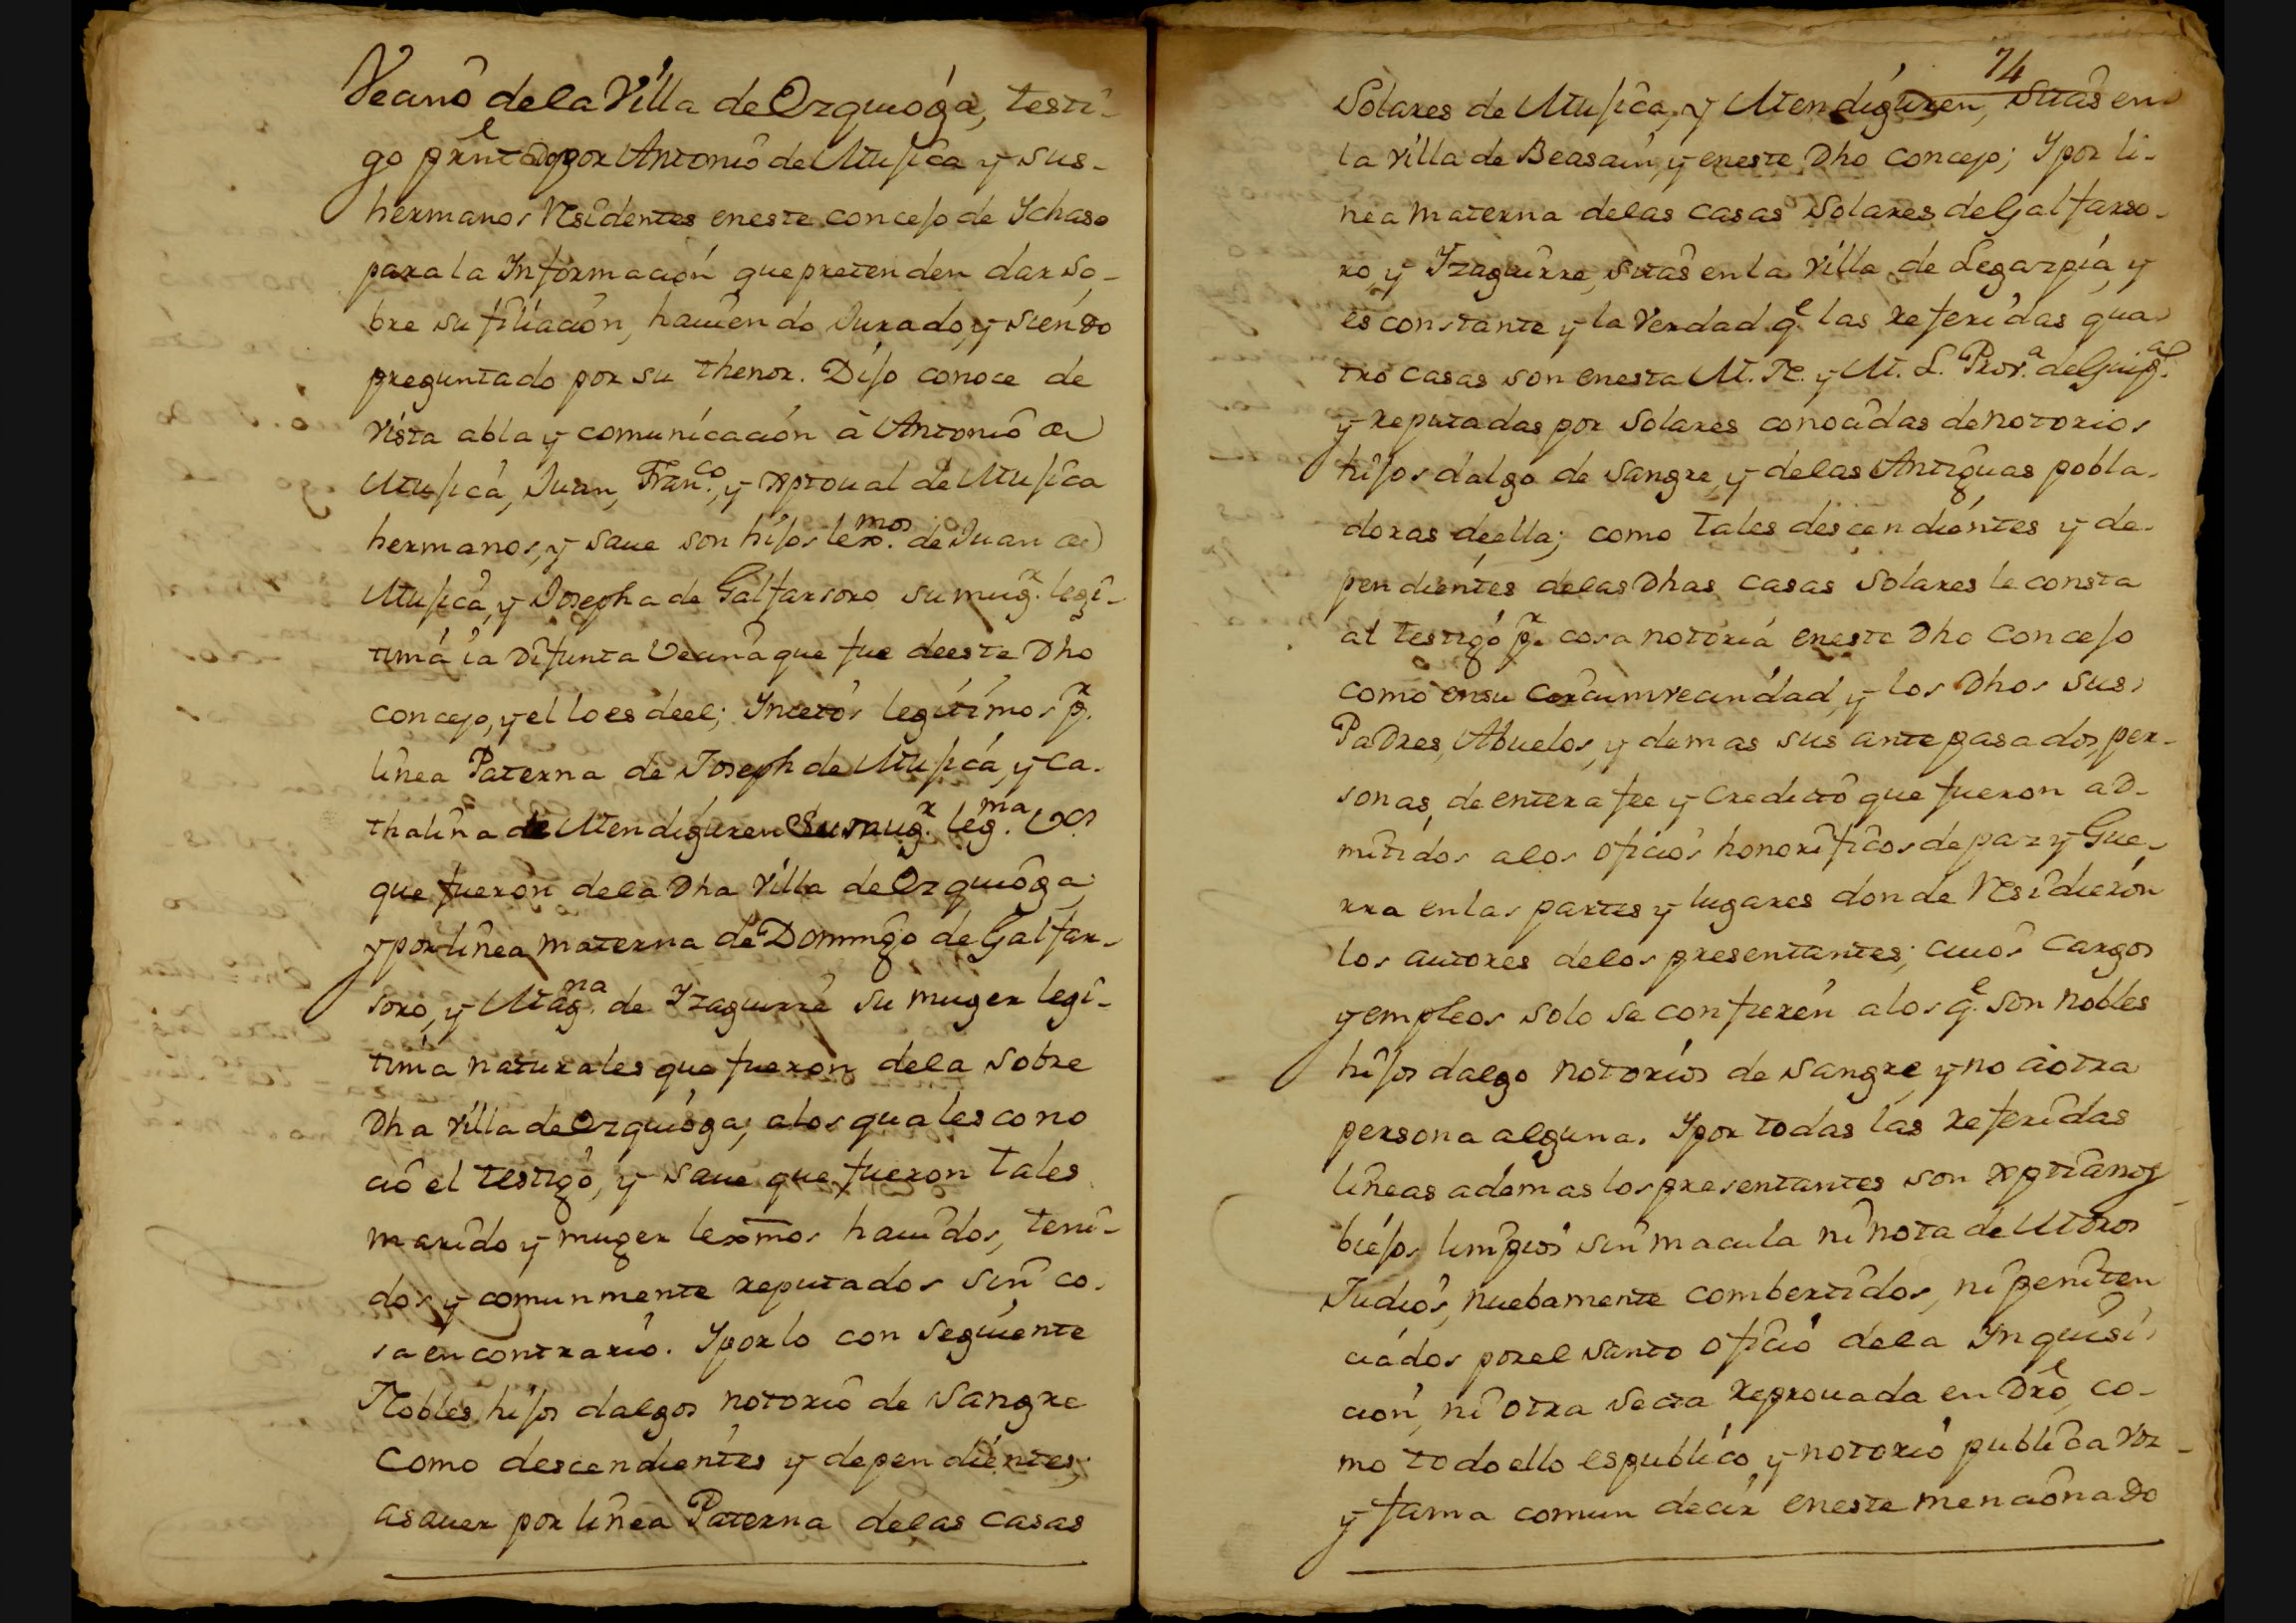 Vecino de la Villa de Ozquioga, testi-
go prêntado por Antonio de Mujica y sus-
hermanos Residentes eneste concejo de Ychaso
para la Informacion que pretenden dar so-
bre su filiacion, hauiendo Jurado, y siendo
preguntado por su thenor. Dijo conoce de
vista abla y comunicación à Antonio de
Mujica, Juan, Fran.co, y Xptoual de Mujica
hermanos, y saue son hijos lexmos. de Juan de
Mujica, y Josepha de Galfarsoro su mug.r legi-
tima ia Difunta Vecina que fue deeste Dho
concejo, y el lo es deel; Inietos legitimos p.r
linea Paterna de Joseph de Mujica, y Ca-
thalina de Mendiguren Su mug.r leg.ma Vs.
que fueron dela Dha Villa de Ozquioga;
y por linea materna de Domingo de Galfar-
soro, y Mag.na de Yzaguirre su muger legi-
tima naturales que fueron dela sobre
Dha Villa de Ozquioga; alos quales cono
cio el testigo, y saue que fueron tales
marido y muger lexmos hauidos, teni-
dos y comunmente reputados sin co-
sa en contrario. Y por lo con seguiente
Nobles hijos dalgos notorio de sangre
como descendientes y dependientes;
asauer por linea Paterna delas casas
74
Solares de Mujica, y Mendiguren, sitas en
la villa de Beasain, y eneste Dho concejo; Y por li-
nea materna delas casas Solares de Galfarso-
ro, y Yzaguirre, sitas en la villa de Legazpia, y
es constante y la verdad q.e las referidas qua
tro casas son enesta M. N. y M. L. Prov.a de Guip.a
y reputadas por Solares conocidas de notorios
hijos dalgo de sangre, y delas Antiguas pobla-
doras deella; como tales descendientes y de-
pendientes delas Dhas casas Solares le consta
al testigo p.r cosa notoria eneste Dho concejo
como ensu circumvecindad, y los Dhos sus
Padres, Abuelos, y demas sus antepasados, per-
sonas, de entera fee y credito que fueron ad-
mitidos alos oficios honorificos de paz y Gue-
rra en las partes y lugares donde Residieron
los autores delos presentantes; cuios cargos
y empleos solo se confieren alos q.e son nobles
hijos dalgo notorios de sangre, y no a otra
persona alguna. Y por todas las referidas
lineas ademas los presentantes son xptianos
biejos limpios sin macula ni nota de Moros
Judios, nuebamente combertidos, ni peniten
ciados por el santo oficio dela Inquisi
cion, ni otra secta reprouada en Drô, co-
mo todo ello es publico y notorio publica voz
y fama comun decir eneste mencionado